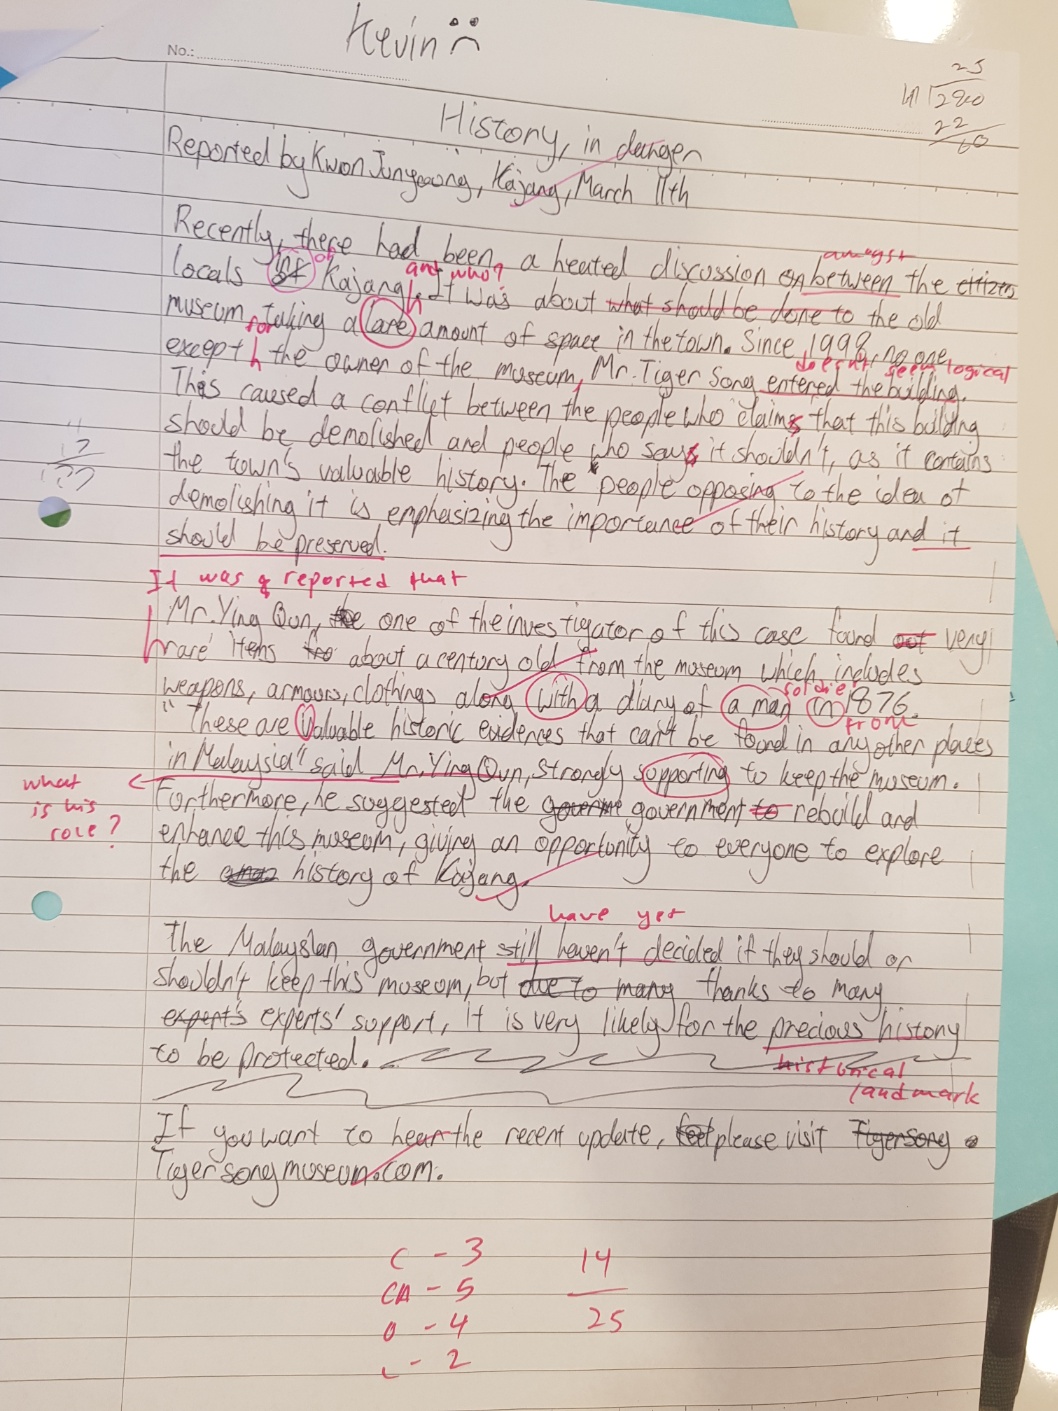 Kevin
No.:
25
11 280
22
60
History, in danger
Reported by Kwon Junyeong, Kajang, March 11th
Recently, there had been a heated discussion on between the citizens
amongst
locals of Kajang. It was about what should be done to the old
and who?
museum taking a lare amount of space in the town. Since 1998, no one,
for
except the owner of the museum, Mr. Tiger Song entered the building.
doesn't seem logical
This caused a conflict between the people who claims that this building
should be demolished and people who says it shouldn't, as it contains
the town's valuable history. The people opposing to the idea of
demolishing it is emphasizing the importance of their history and it
should be preserved.
It was reported that
Mr. Ying Qun, the one of the investigator of this case found out very
rare items about a century old from the museum which includes
weapons, armours, clothings along with a diary of a man in 1876.
soldier
from
"These are valuable historic evidences that can't be found in any other places
in Malaysia" said Mr. Ying Qun, strongly supporting to keep the museum.
what
is his
role?
Furthermore, he suggested the government to rebuild and
enhance this museum, giving an opportunity to everyone to explore
the history of Kajang.
have yet
The Malaysian government still haven't decided if they should or
shouldn't keep this museum, but due to many thanks to many
expert's experts' support, it is very likely for the precious history
to be protected.
historical
landmark
If you want to hear the recent update, please visit Tigersong
Tigersongmuseum.com.
C - 3
CA - 5
O - 4
L - 2
14
25